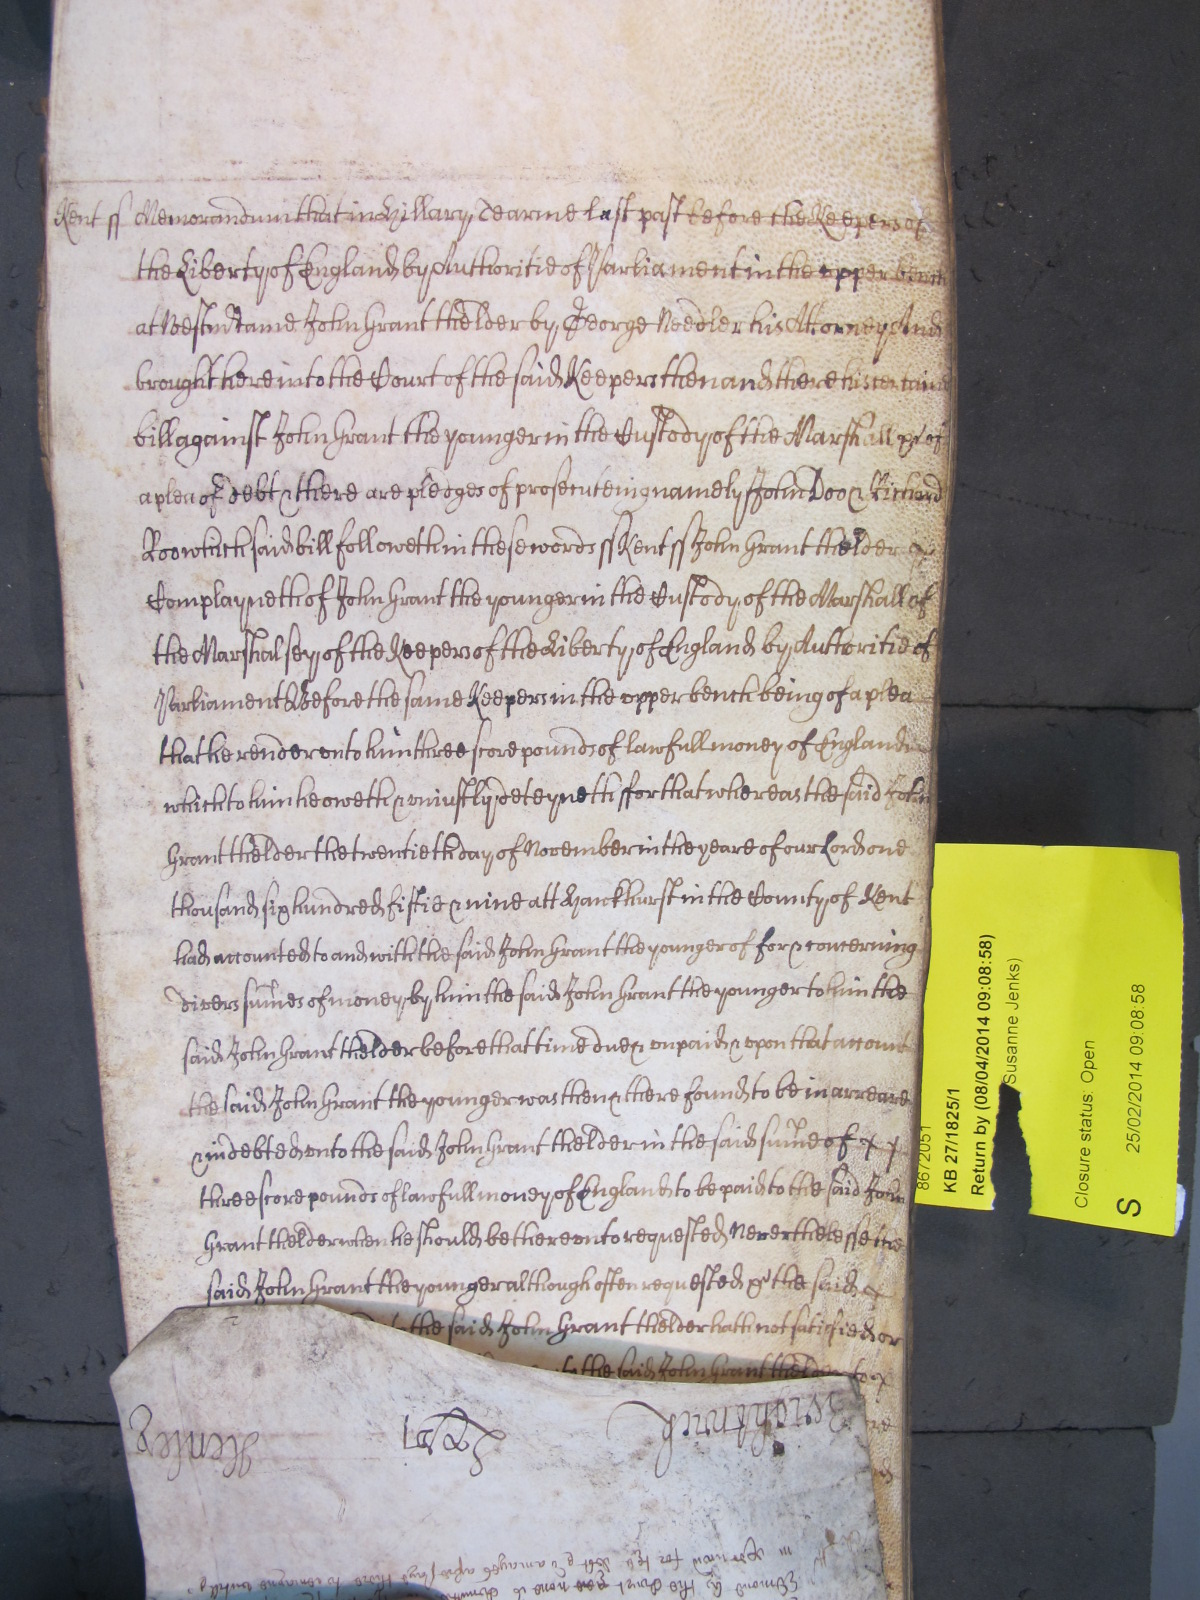 Kent ss Memorandum that in Hillary Tearme last past before the Keepers of
the Liberty of England by Authoritie of Parliament in the upper bench
at Westmr came John Grant thelder by George Needler his Attorney And
brought here into the Court of the said Keepers then and there his certaine
bill against John Grant the younger in the Custody of the Marshall &c of
a plea of debt & there are pledges of prosecuteing namely John Doo & Richard
Roo which said bill followeth in these words ss Kent ss John Grant thelder
Complayneth of John Grant the younger in the Custody of the Marshall of
the Marshalsey of the Keepers of the Liberty of England by Authoritie of
Parliament Before the same Keepers in the upper bench being of a plea
that he render unto him three score pounds of lawfull money of England
which to him he oweth & uniustly deteyneth ffor that whereas the said John
Grant thelder the twentieth day of November in the yeare of our Lord one
thousand six hundred fiftie & nine att Hawkhurst in the County of Kent
had accounted to and with the said John Grant the younger of for & concerning
divers sumes of money by him the said John Grant the younger to him the
said John Grant thelder before that time due & unpaid & upon that accompt
the said John Grant the younger was then & there found to be in arreare
& indebted unto the said John Grant thelder in the said sume of
threescore pounds of lawfull money of England to be paid to the said John
Grant thelder when he should be thereunto requested Neverthelesse the
said John Grant the younger although often requested &c the said
the said John Grant thelder hath not satisfied or
to the said John Grant thelder to
86/2051
KB 27/1825/1
Return by (08/04/2014 09:08:58)
Susanne Jenks)
Closure status: Open
S
25/02/2014 09:08:58